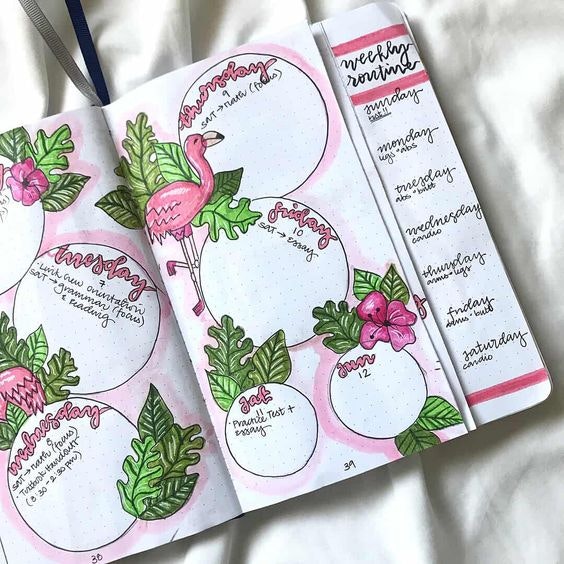 tuesday
7
Link crew orientation
SAT → grammar (focus)
& reading
wednesday
8
SAT → math (focus)
- Textbook Handout
(8:30 - 2:30 pm)
38
thursday
9
SAT → math (focus)
friday
10
SAT → essay
sat
11
Practice Test +
essay
sun
12
39
weekly
routine
sunday
monday
legs + abs
tuesday
abs + butt
wednesday
cardio
thursday
arms + legs
friday
arms + butt
saturday
cardio